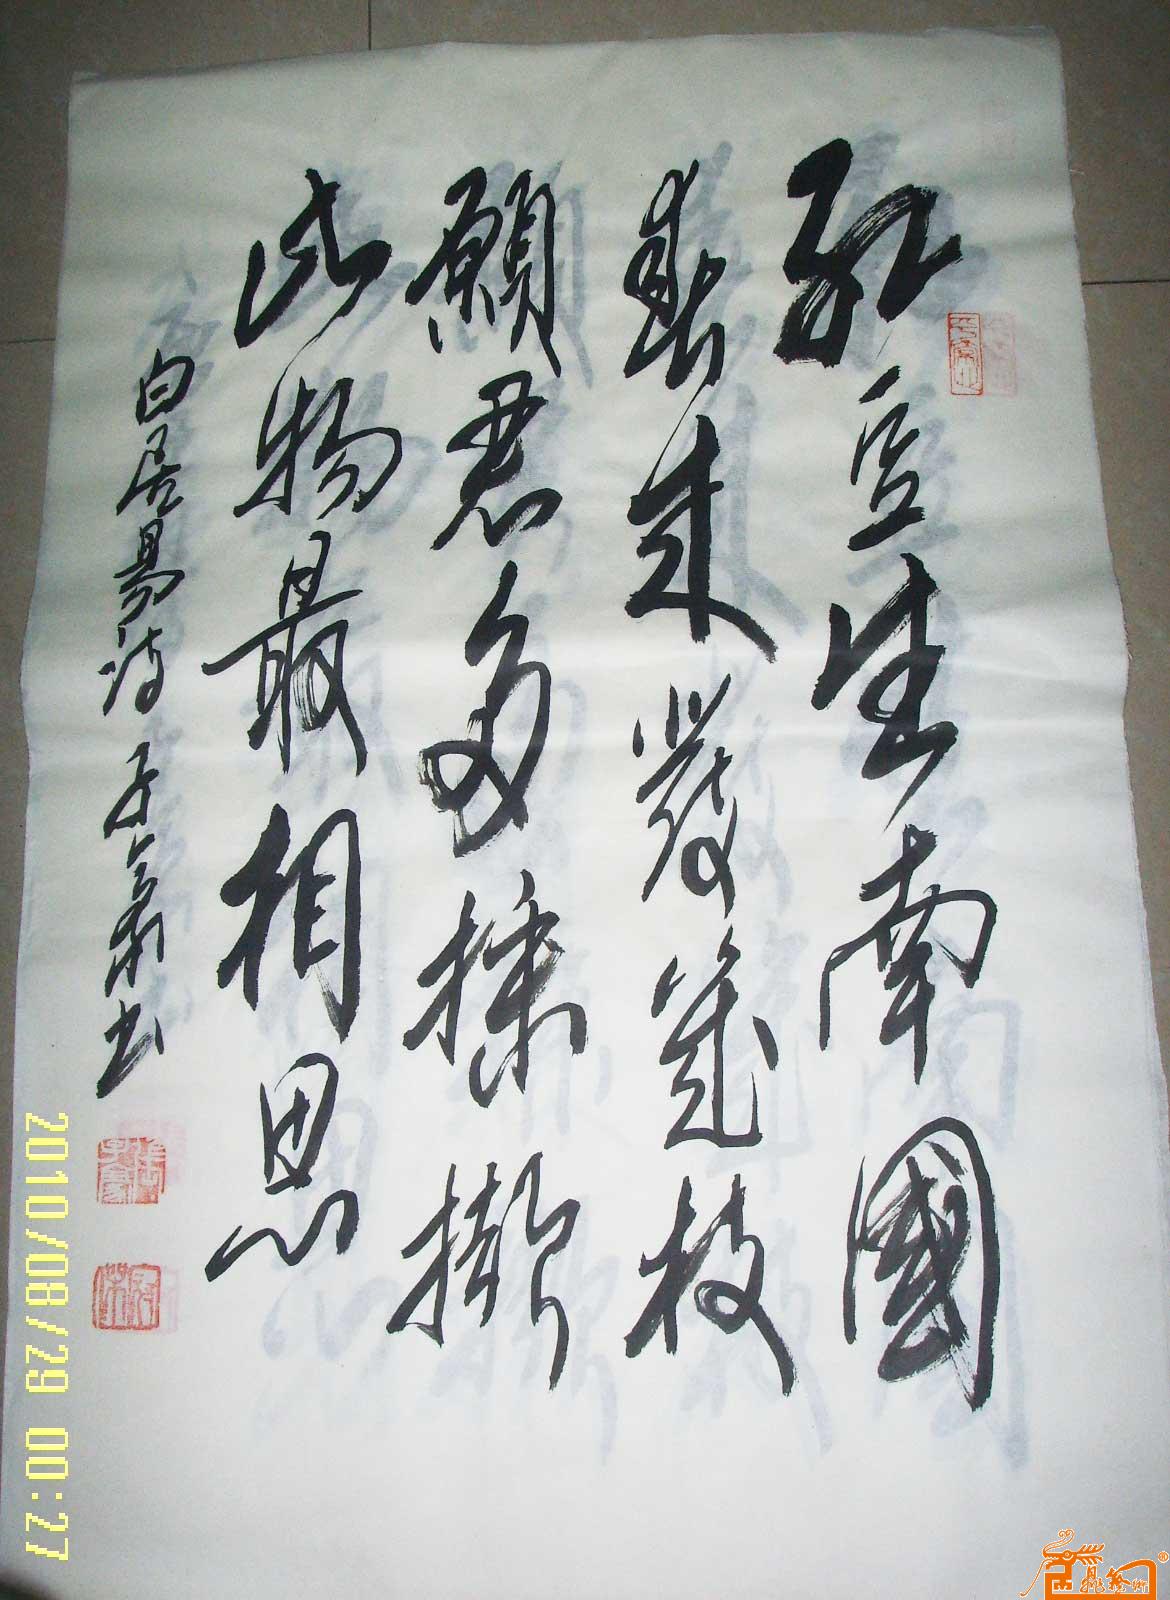 红豆生南國
春来發幾枝
願君多採擷
此物最相思
白居易诗 子豪书
2010/08/29 00:27